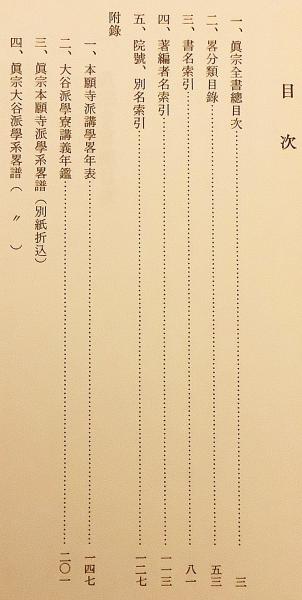 目次
一、眞宗全書總目次……………三
二、畧分類目錄……………五三
三、書名索引……………八一
四、著編者名索引……………一一三
五、院號、別名索引……………一二七
附錄
一、本願寺派講學畧年表……………一四七
二、大谷派學寮講義年鑑……………二〇一
三、眞宗本願寺派學系畧譜（別紙折込）
四、眞宗大谷派學系畧譜（　〃　）